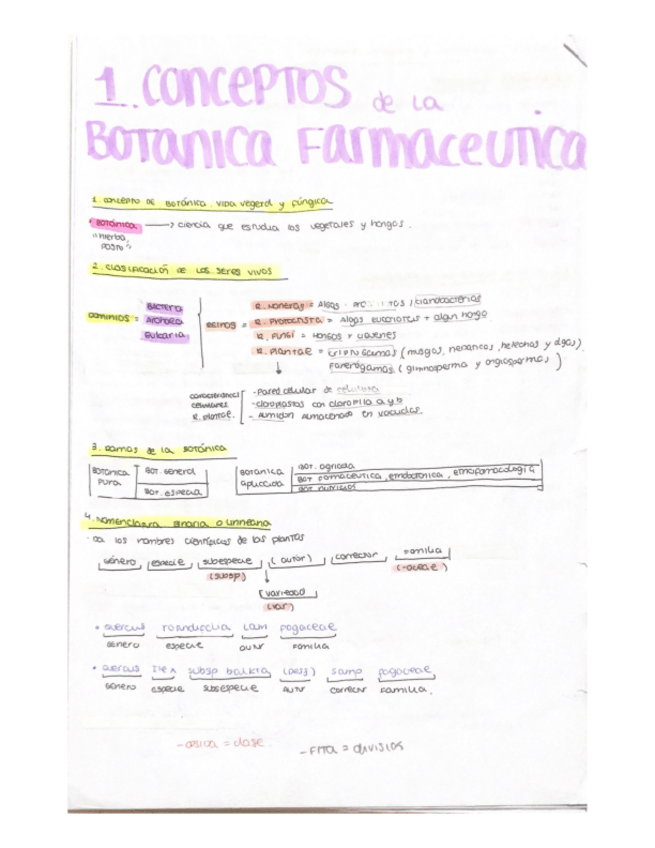 1. Conceptos de la
Botanica Farmaceutica
1. Concepto de botánica. vida vegetal y fúngica
• Botánica → ciencia que estudia los vegetales y hongos.
"hierba,
pasto"
2. Clasificación de los seres vivos
Dominios =
Bacteria
Archaea
Eukaria
Reinos =
R. Moneras = Algas / cianobacterias
R. Protoctista = Algas eucariotas + algún hongo
R. Fungi = Hongos + líquenes
R. Plantae = criptógamas (musgos, hepáticas, helechos y algas)
Fanerógamas (gimnosperma y angiospermas)
características
celulares
R. plantae.
- Pared celular de celulosa
- cloroplastos con clorofila a y b
- Almidón almacenado en vacuolas.
3. Ramas de la botánica
Botánica pura
Bot. general
Bot. especial
Botánica aplicada
Bot. agrícola
Bot farmaceutica, etnobotánica, etnofarmacología
Bot nutrición
4. Nomenclatura Binaria o Linneana
- da los nombres científicos de las plantas
Género especie subespecie (autor) corrector Familia
(subsp) (-aceae)
(variedad)
(var)
• Quercus rotundifolia Lam fagaceae
Género especie autor Familia
• Quercus Ilex subsp ballota (Desf) samp fagaceae
Género especie subespecie Autor corrector Familia.
-opsida = clase. - FITA = división